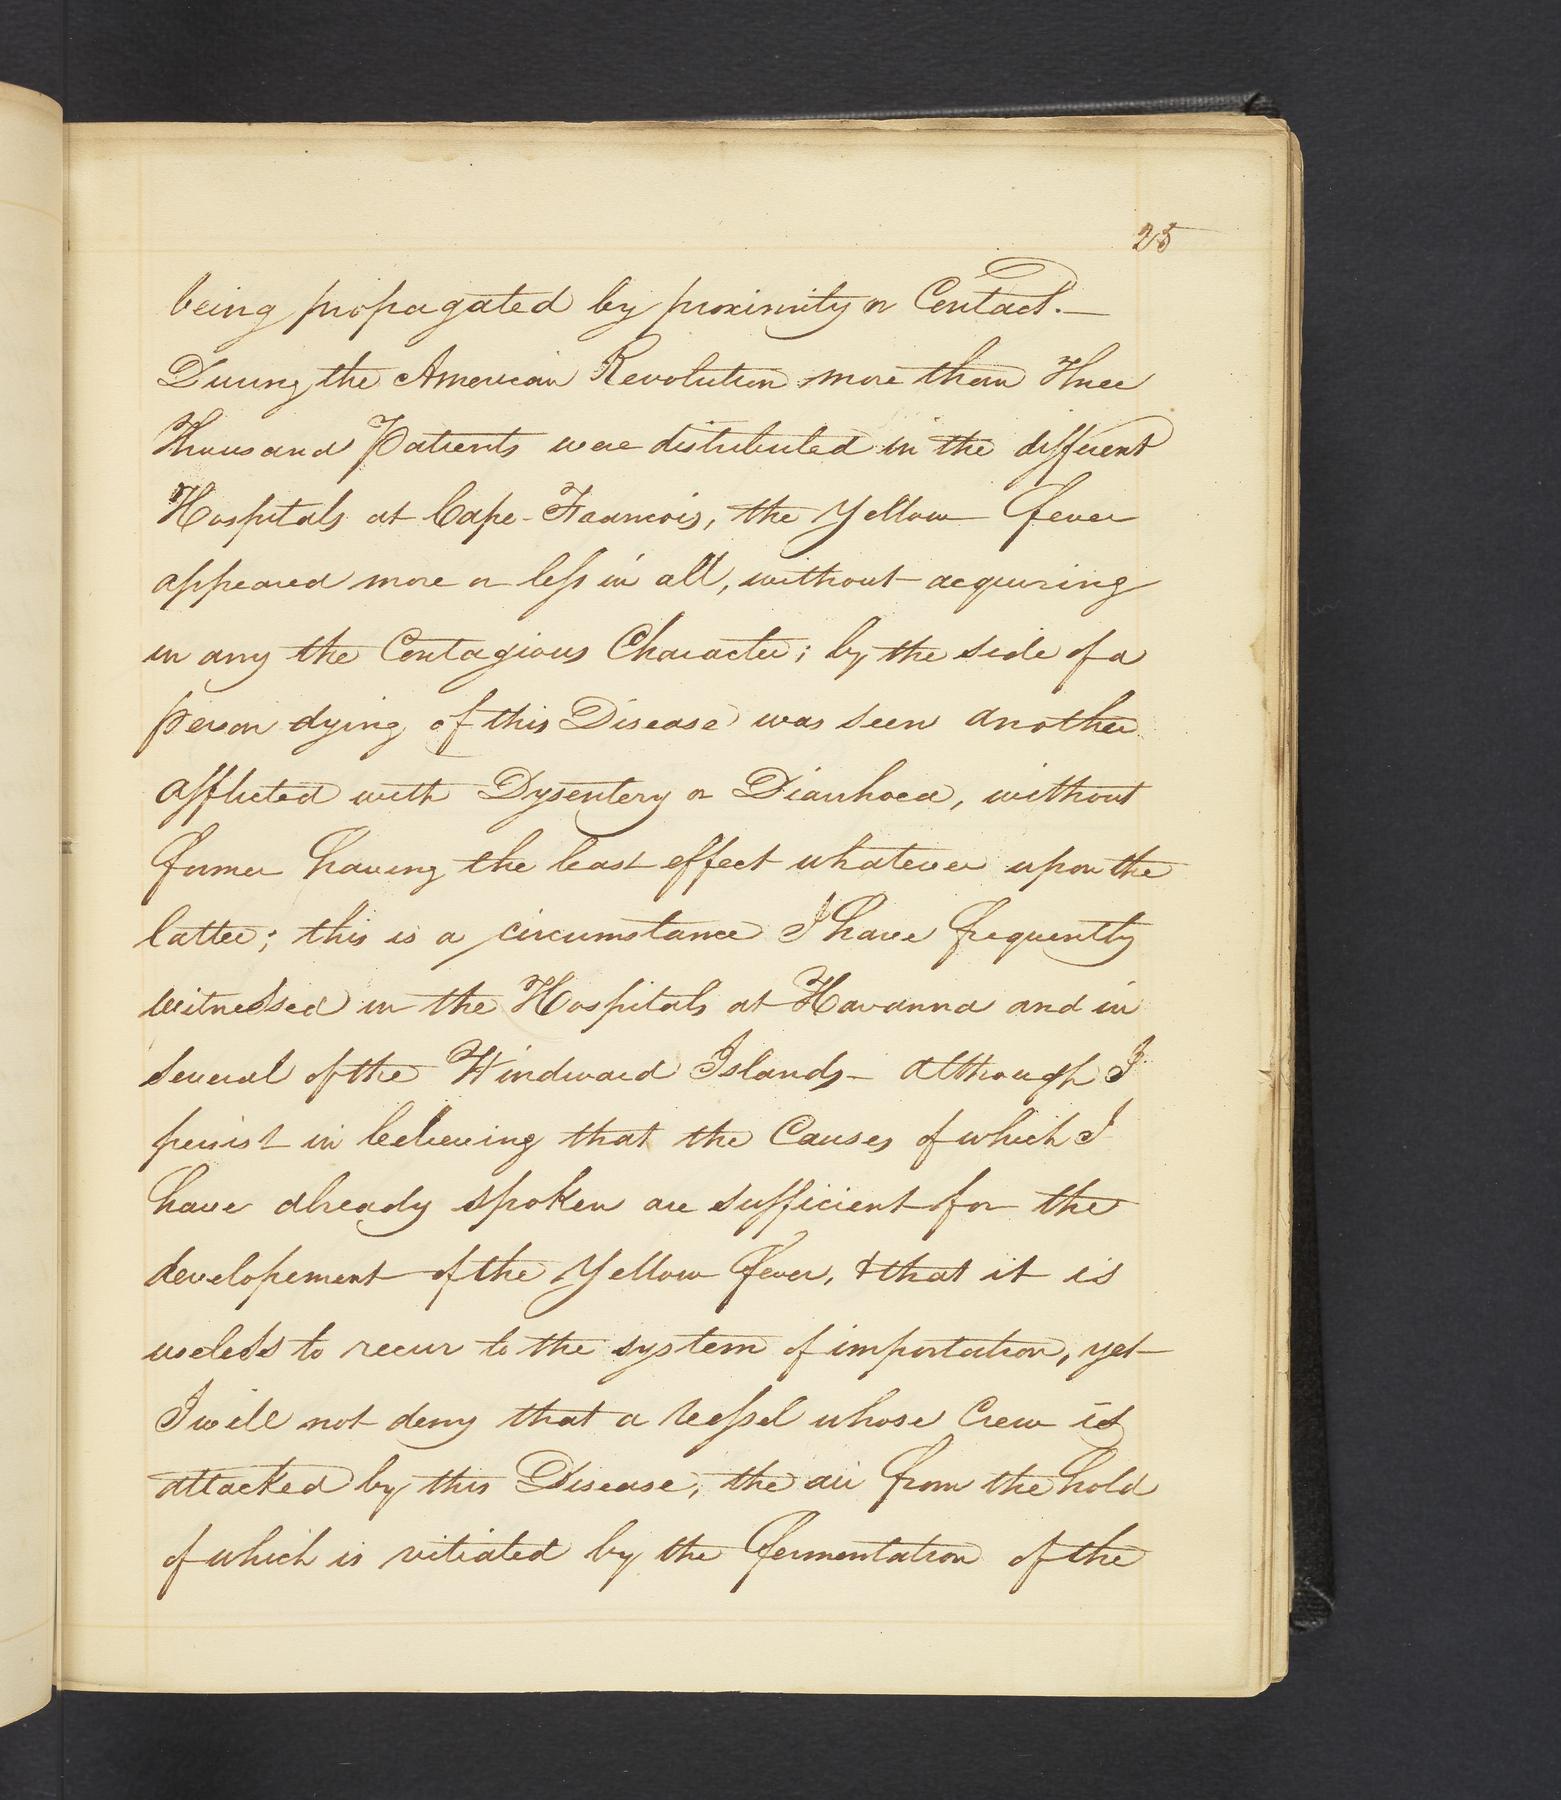 25
being propagated by proximity or Contact.—
During the American Revolution more than Three
Thousand Patients were distributed in the different
Hospitals at Cape-Francois, the Yellow Fever
appeared more or less in all, without acquiring
in any the Contagious Character; by the side of a
person dying of this Disease was seen another
afflicted with Dysentery or Diarrhoea, without
former having the least effect whatever upon the
latter; this is a circumstance I have frequently
witnessed in the Hospitals at Havanna and in
several of the Windward Islands — although I
persist in believing that the Causes of which I
have already spoken are sufficient for the
developement of the Yellow Fever, & that it is
useless to recur to the system of importation, yet
I will not deny that a Vessel whose Crew is
attacked by this Disease, the air from the hold
of which is vitiated by the fermentation of the